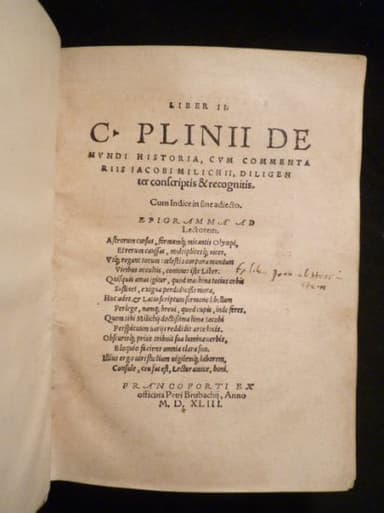 LIBER II.
C. PLINII DE
MVNDI HISTORIA, CVM COMMENTA
RIIS IACOBI MILICHII, DILIGEN
ter conscriptis & recognitis.
Cum Indice in fine adiecto.
EPIGRAMMA AD
Lectorem.
Astrorum cursus, formamq; micantis Olympi,
Et rerum caussas, multiplicesq; vices,
Vtq; regant totum cœlestia corpora mundum
Viribus occultis, continet iste Liber.
Quisquis amas igitur, quod machina totius orbis
Sustinet, exigua perdidicisse mora,
Huc ades, & Latio scriptum sermone libellum
Perlege, namq; brevi, quod cupis, inde feres.
Quem tibi Milichij doctissima lima Iacobi
Perspicuum varijs reddidit arte locis.
Obscurisq; prius tribuit sua lumina verbis,
Eloquio faciens omnia clara suo.
Illius ergo viri studium vigilemq; laborem,
Consule, ceu fas est, Lector amice, boni.
FRANCOFORTI EX
officina Petri Brubachij, Anno
M. D. XLIII.
Ex lib.